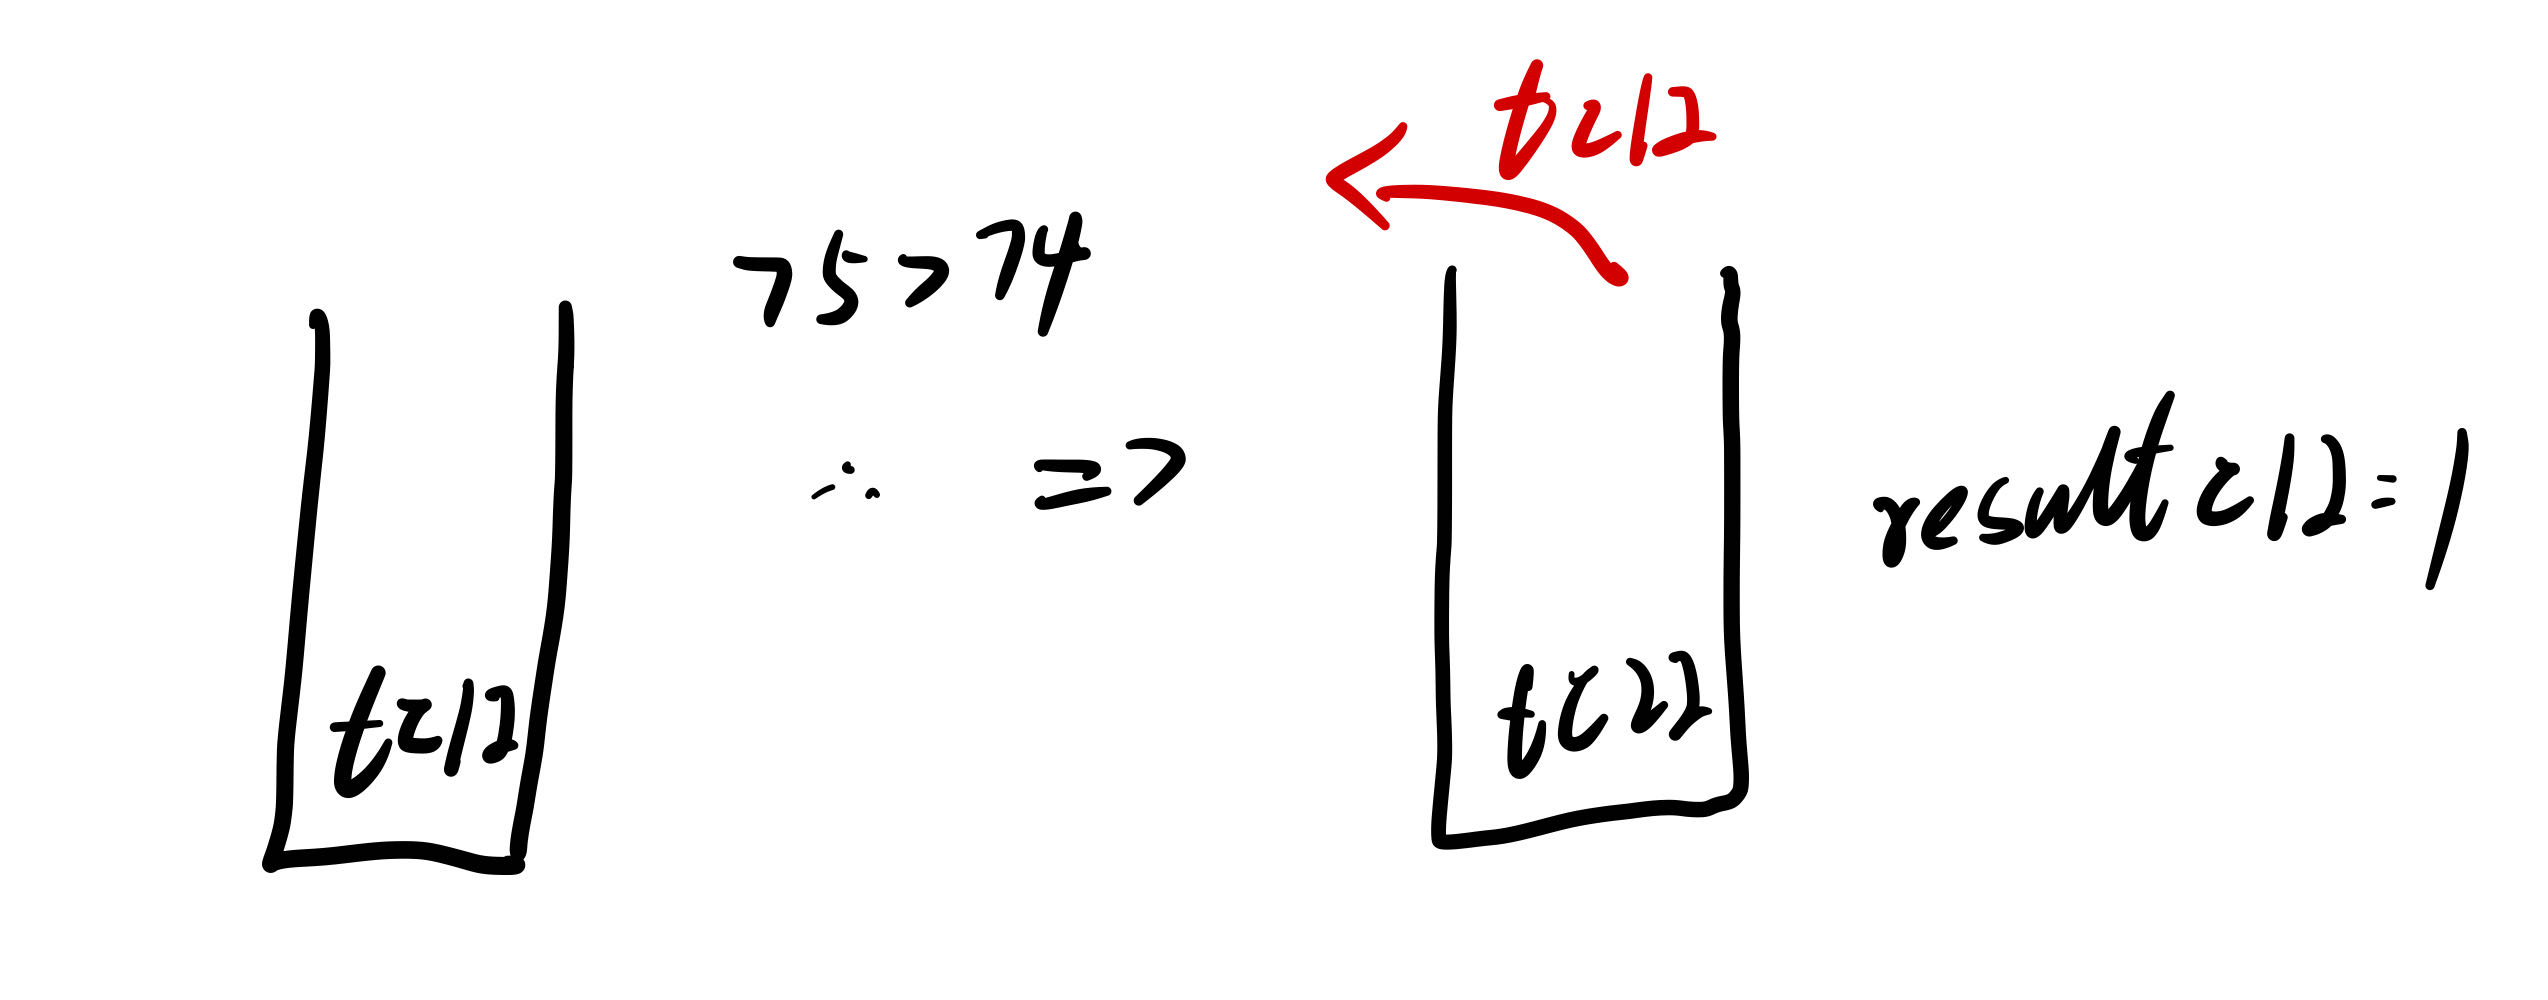 t[1]
75>74
t[1]
∴ =>
result[1]=1
t[2]